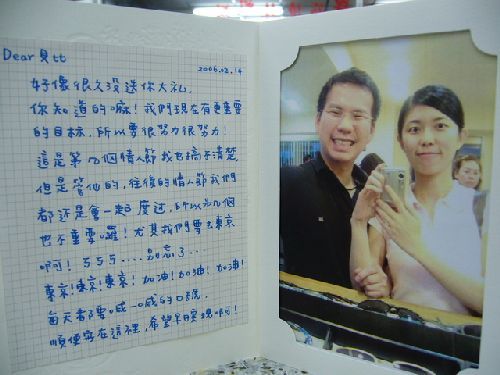 Dear 貝tt
2006.02.14
好像很久沒送你大禮，
你知道的嘛！我們現在有更重要
的目標，所以要很努力很努力！
這是第几個情人節我也搞不清楚
但是管他的，往後的情人節我們
都還是會一起度过，所以几個
也不重要囉！尤其我們要去東京
啊！ㄎㄎㄎ....別忘了...
東京！東京！東京！加油！加油！加油！
每天都要喊一喊的口號.
順便寫在這裡，希望早日實現啊！